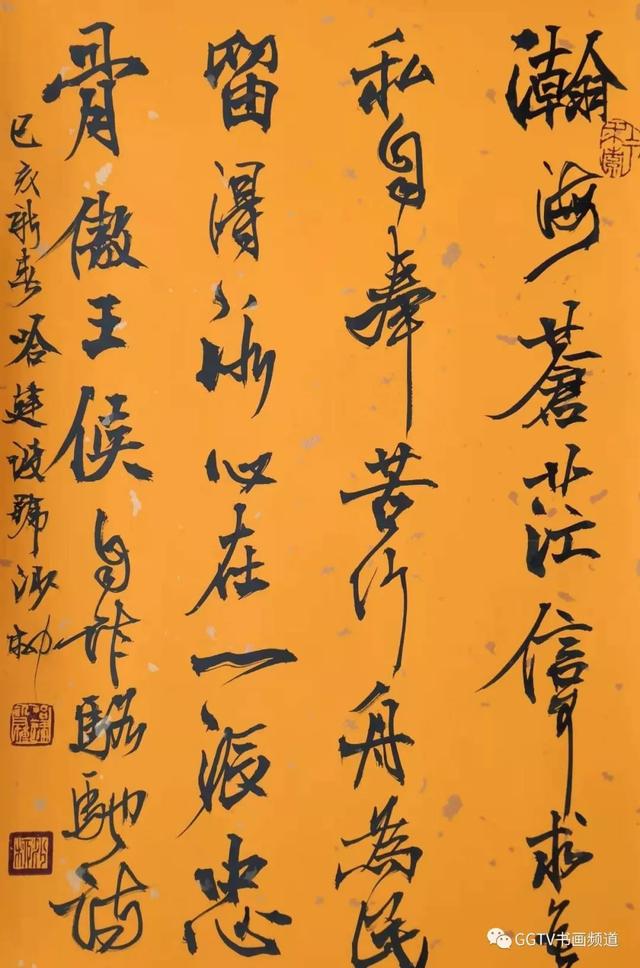 瀚海蒼茫信求無
私自奉苦行舟為民
留得冰心在一派忠
骨傲王候自作駱駝詩
己亥新春哈建設號沙柳
GGTV书画频道